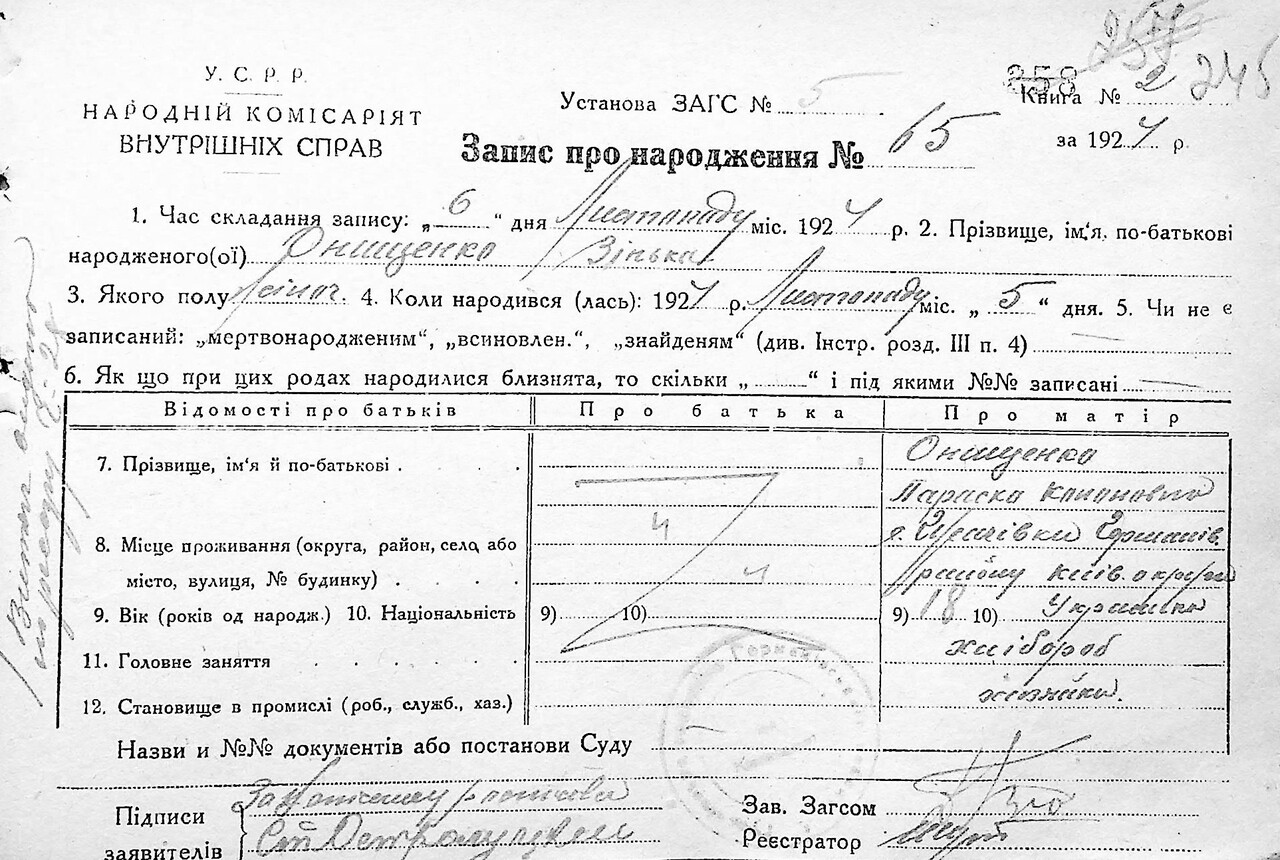 У. С. Р. Р.
НАРОДНІЙ КОМІСАРІЯТ
ВНУТРІШНІХ СПРАВ
Установа ЗАГС № 5
358
Книга № 2 245
за 1924 р.
Запис про народження № 65
1. Час складання запису: „6“ дня Листопаду міс. 1924 р. 2. Прізвище, ім'я, по-батькові
народженого(ої) Онищенко Зінька
3. Якого полу жіноч. 4. Коли народився (лась): 1924 р. Листопаду міс. „5“ дня. 5. Чи не є
записаний: „мертвонародженим“, „всиновлен.“, „знайденям“ (див. Інстр. розд. III п. 4)
6. Як що при цих родах народилися близнята, то скільки „ “ і під якими №№ записані
Відомості про батьків Про батька Про матір
7. Прізвище, ім'я й по-батькові Онищенко
Параска
8. Місце проживання (округа, район, село, або
місто, вулиця, № будинку) району київ. округи
9. Вік (років од народж.) 10. Національність 9) 10) 9) 18 10) Українка
11. Головне заняття хлібороб
12. Становище в промислі (роб., служб., хаз.) хазяйка.
Назви и №№ документів або постанови Суду
Підписи
заявителів
Зав. Загсом
Реєстратор